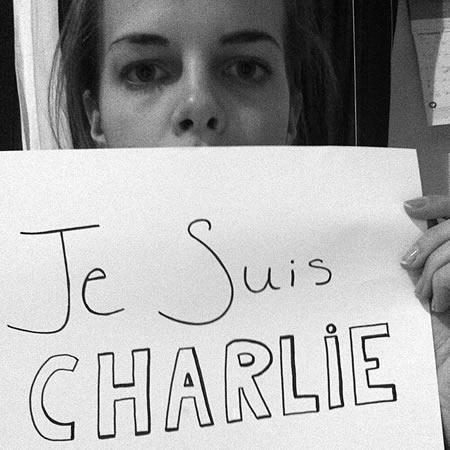 Je Suis
CHARLiE